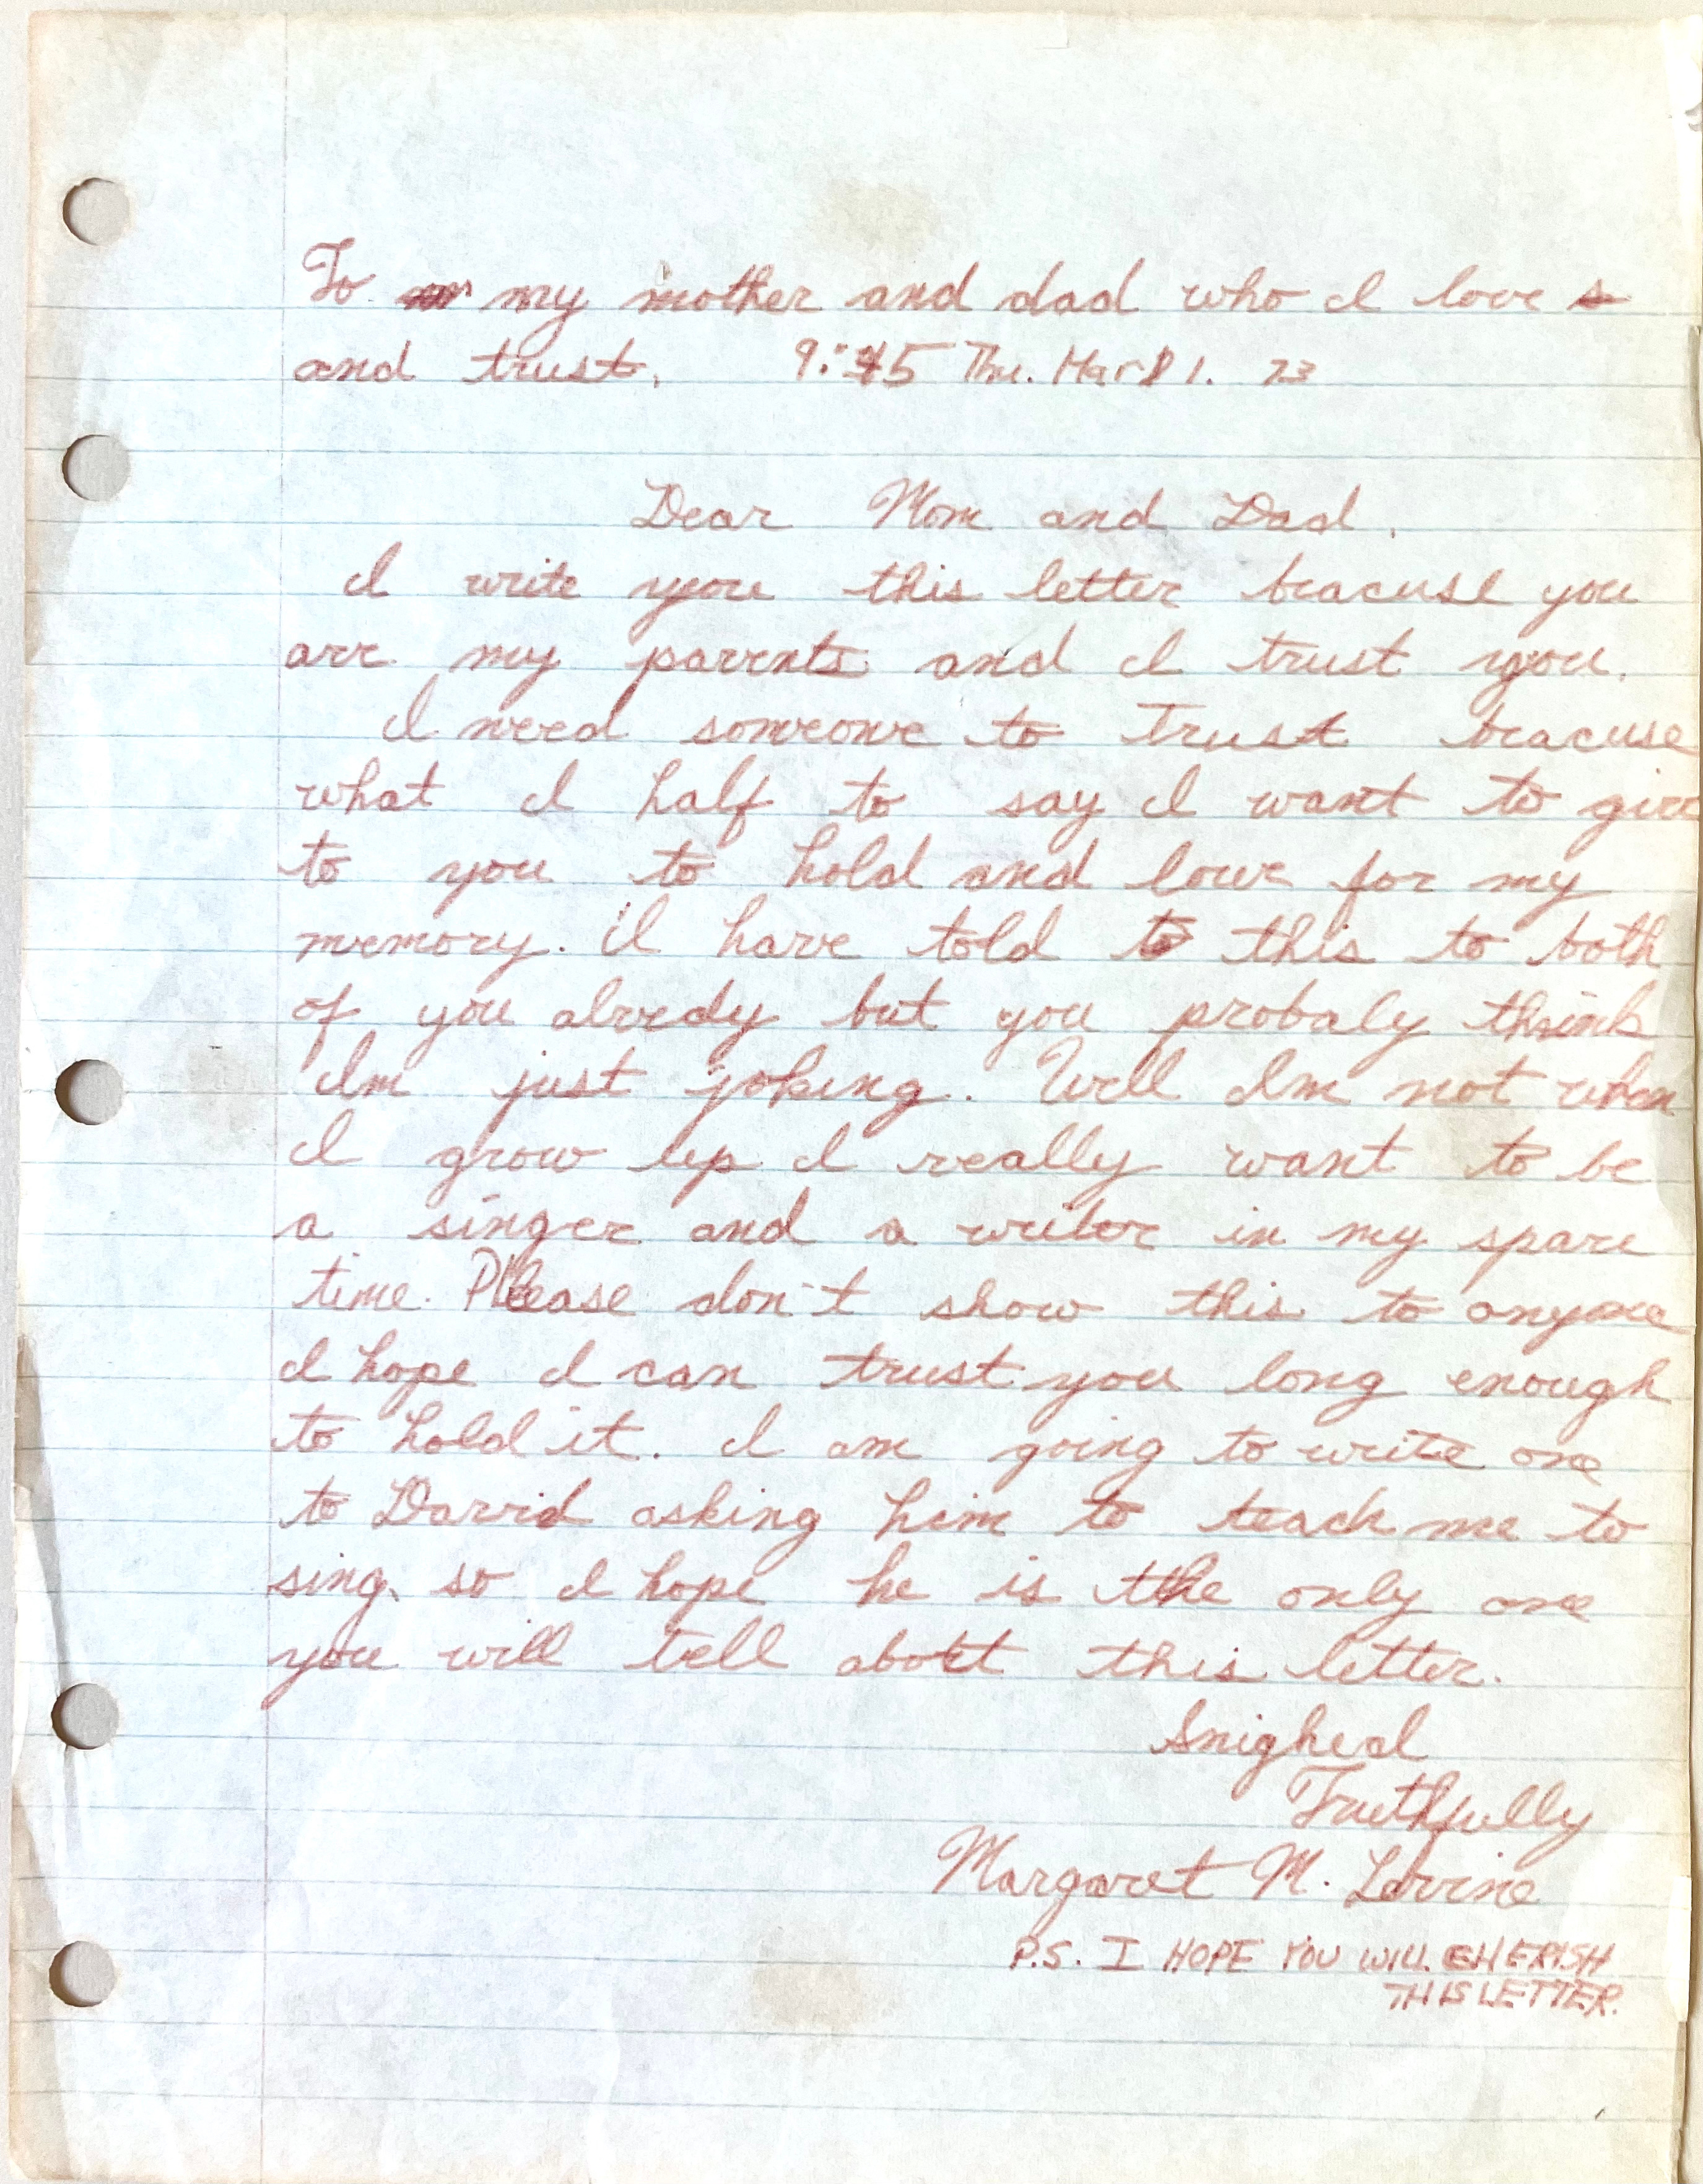 To my mother and dad who I love
and trust. 9:45 Thu. Mar 81. 73
Dear Mom and Dad,
I write you this letter beacuse you
are my parents and I trust you.
I need someone to trust beacuse
what I half to say I want to give
to you to hold and love for my
memory. I have told this to both
of you alredy but you probaly think
Im just joking. Well Im not when
I grow up I really want to be
a singer and a writer in my spare
time. Please don't show this to anyone
I hope I can trust you long enough
to hold it. I am going to write one
to David asking him to teach me to
sing, so I hope he is the only one
you will tell about this letter.
Snighed
Truthfully
Margaret M. Levine
P.S. I HOPE YOU WILL CHERISH
THIS LETTER.